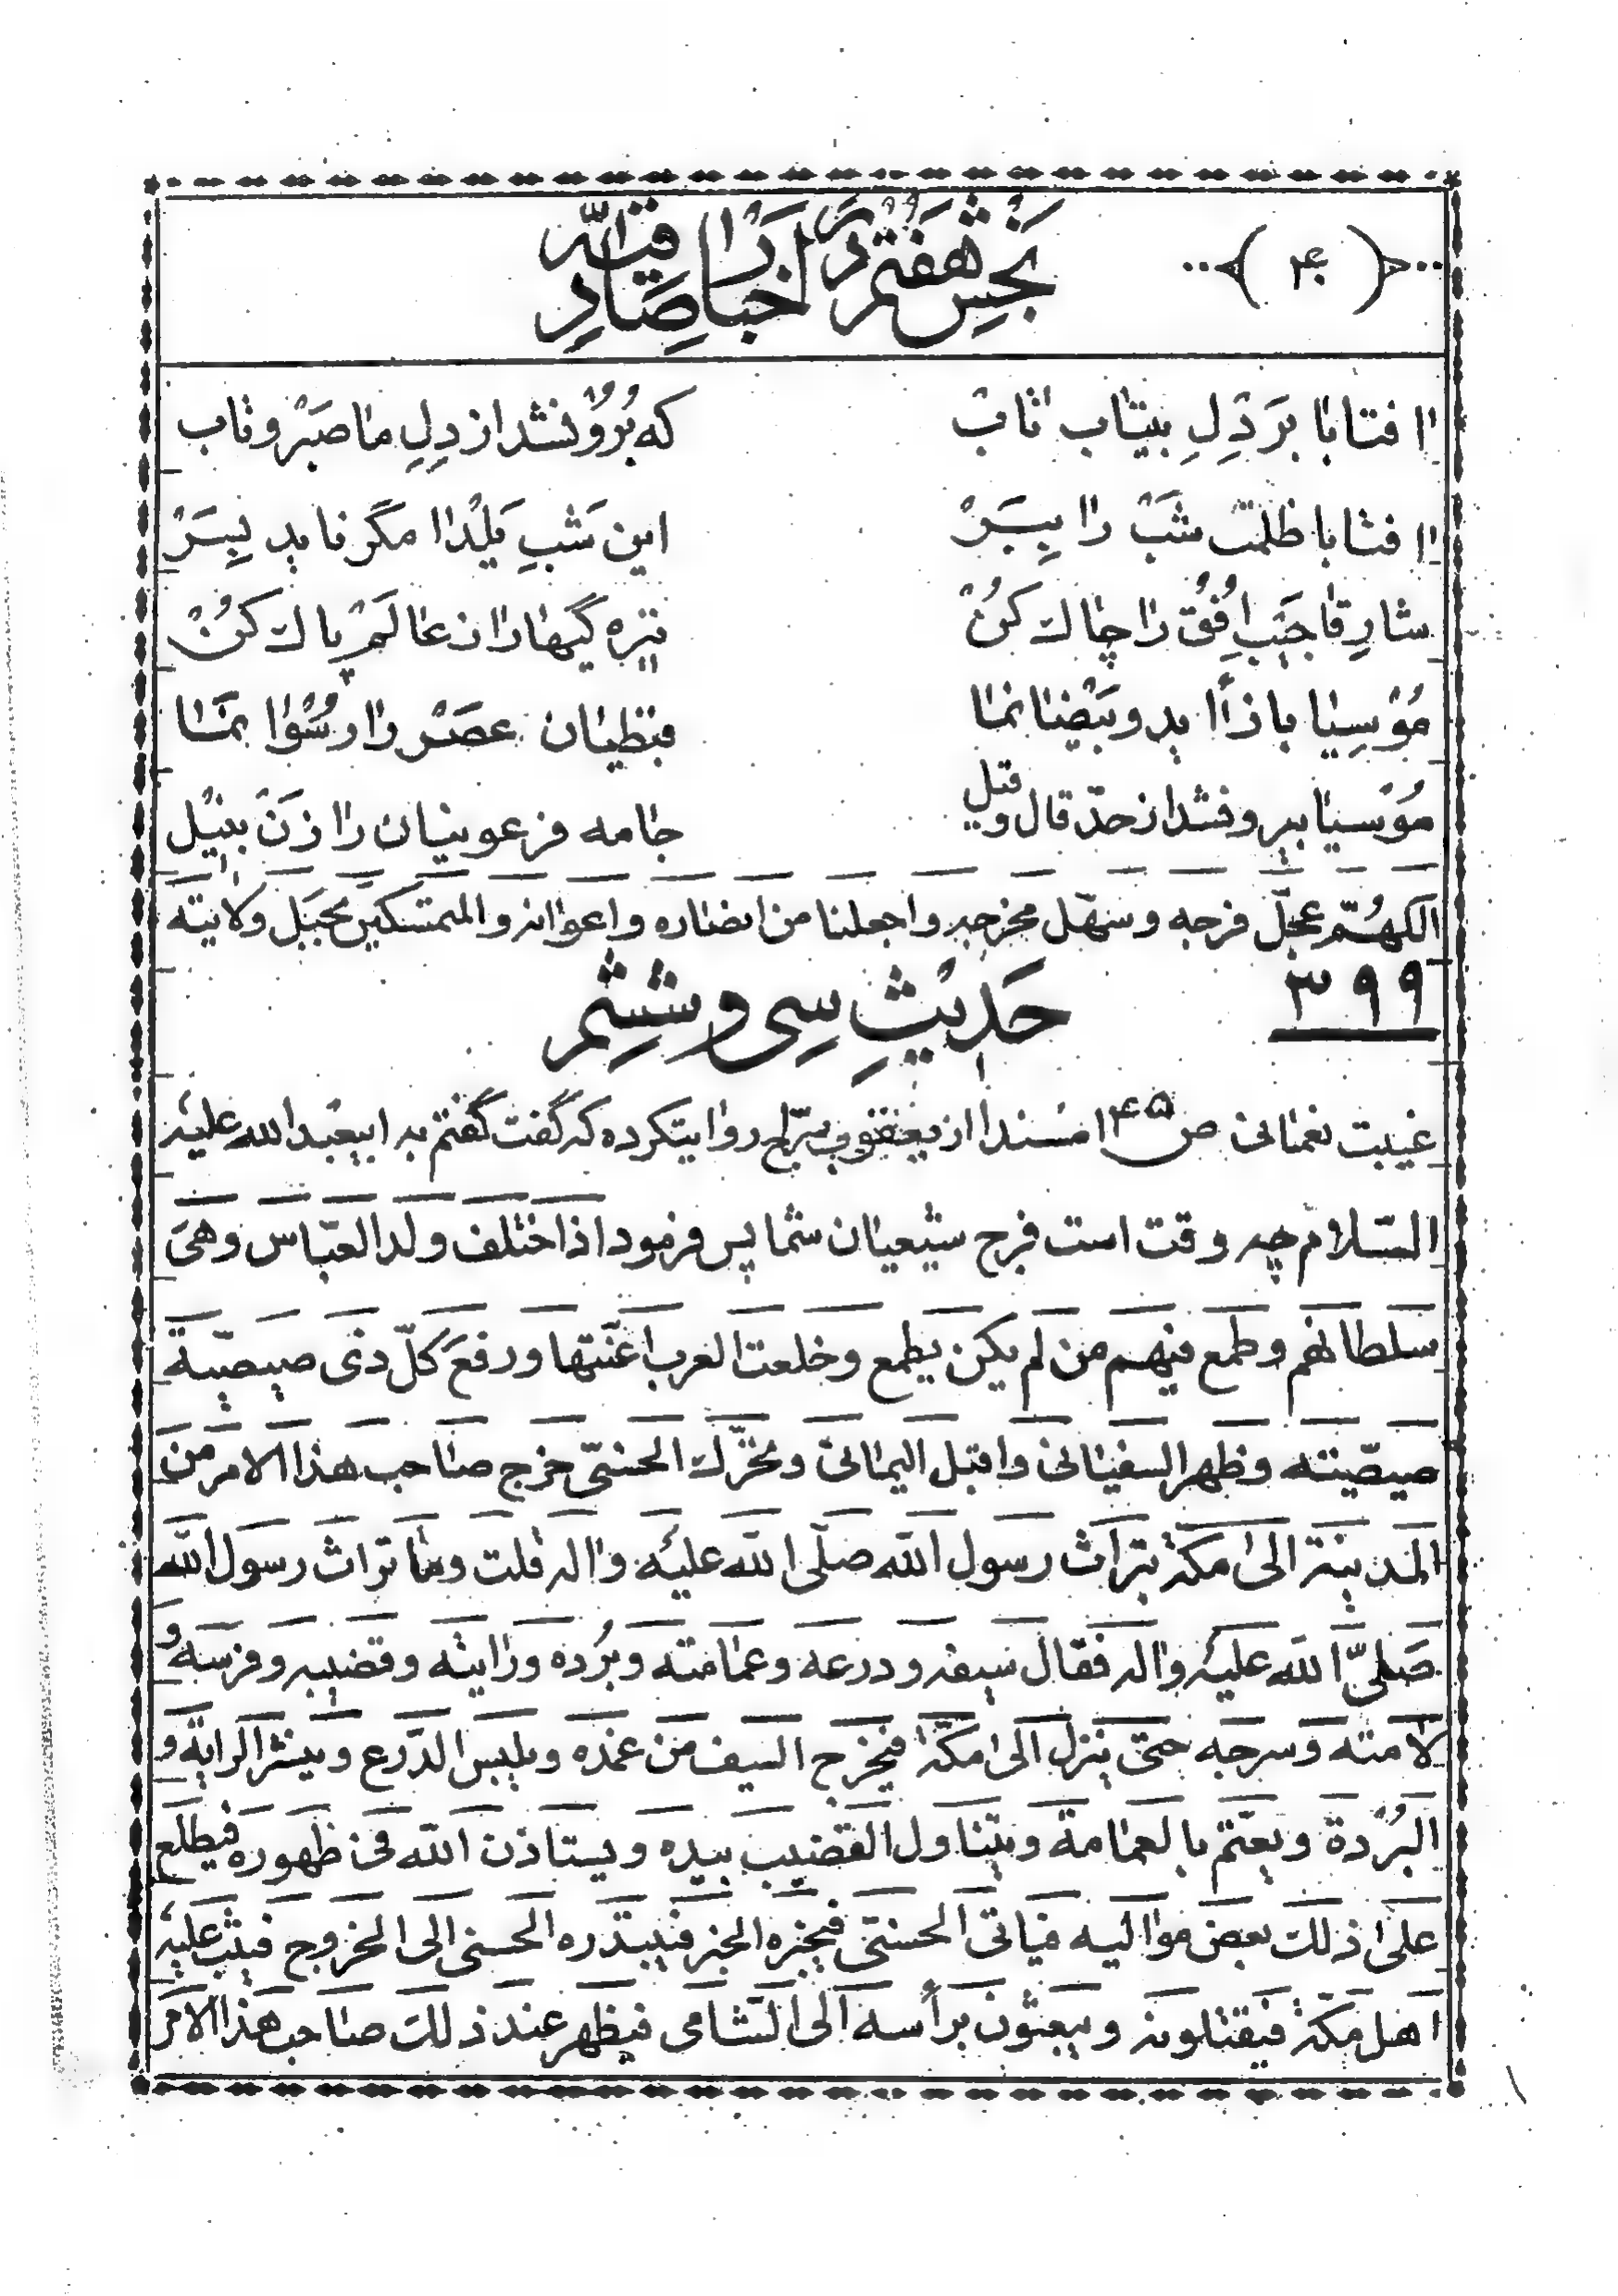 بَخشِ هَفتُم دَر اَخبارِ صادِقِیَّه
﴿ ۴۰ ﴾
اافتابا بَر دِلِ بیتاب تاب
که بُرُون شد از دِلِ ما صَبْر و تاب
اافتابا ظلمت شَبْ را بِبَرْ
این شَبِ یَلْدا مگر ناید بِسَرْ
شارِقا جَیبِ اُفُق را چاک کُنْ
تیره گیها را از عالَمْ پاک کُنْ
مُوْسِیا باز اا ید و بَیْضا نما
قبطیان عصْر را رُسْوا نما
مُوْسیا بیرون شد از حدّ قال و قیل
جامه فرعونیان را زَنْ بنیل
اللهُمّ عجّل فرجه و سهّل مخرجه و اجعلنا من انصاره و اعوانه و المتمسّکین بحَبْل ولایته
۳۹۹
حَدیثِ سِی و شِشُم
غیبت نعمانی ص ۱۴۵ مسندا از یعقوب سرّاج روایتکرده که گفت گفتم به ابیعبد الله علیه
السّلام چه وقت است فرج شیعیان شما پس فرمود اذا اختلف ولد العبّاس و هَیَ
سلطانهم و طمع فیهم من لم یکن یطمع و خلعت العرب اعنّتها و رفعَ کلّ ذی صیصیّة
صیصیّته و ظهر السفیانی و اقبل الیمانی و تحرّک الحسنیّ خرج صاحب هذا الامر من
المدینة الی مکة بتراث رسول الله صلّی الله علیه و اله قلت و ما تراث رسول الله
صَلیّ الله علیه و اله فقال سیفه و درعه و عمامته و بُرده و رایته و قضیبه و فرسه و
لامته و سرجه حتی ینزل الی مکّة فیخرج السیف من غمده و یلبس الدّرع و ینشر الرایة و
البُرْدة و یعتّم بالعمامة و یتناول القضیب بیده و یستاذن الله فی ظهوره فیطلع
علی ذلک بعض موالیه فیاتی الحسنیّ فیخبره الخبر فیبتدره الحسنی الی الخروج فیثب علیه
اهل مکة فیقتلونه و یبعثون برأسه الی الشامی فیظهر عند ذلک صاحب هذا الامر